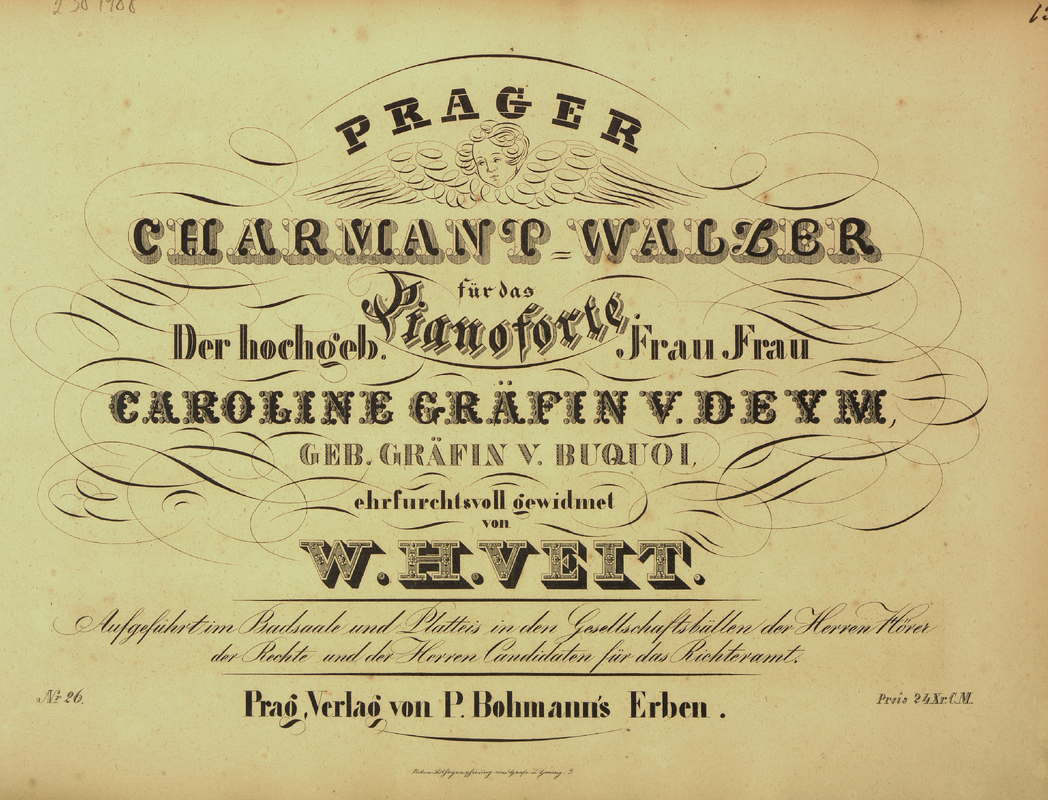 2 30 1908
13
PRAGER
CHARMANT=WALZER
für das
Pianoforte
Der hochgeb. Frau Frau
CAROLINE GRÄFIN V. DEYM,
GEB. GRÄFIN V. BUQUOI,
ehrfurchtsvoll gewidmet
von
W. H. VEIT.
Aufgeführt im Badsaale und Platteis in den Gesellschaftsbällen der Herren Hörer
der Rechte und der Herren Candidaten für das Richteramt.
Nr 26.
Prag, Verlag von P. Bohmann's Erben.
Preis 24 Xr. C.M.